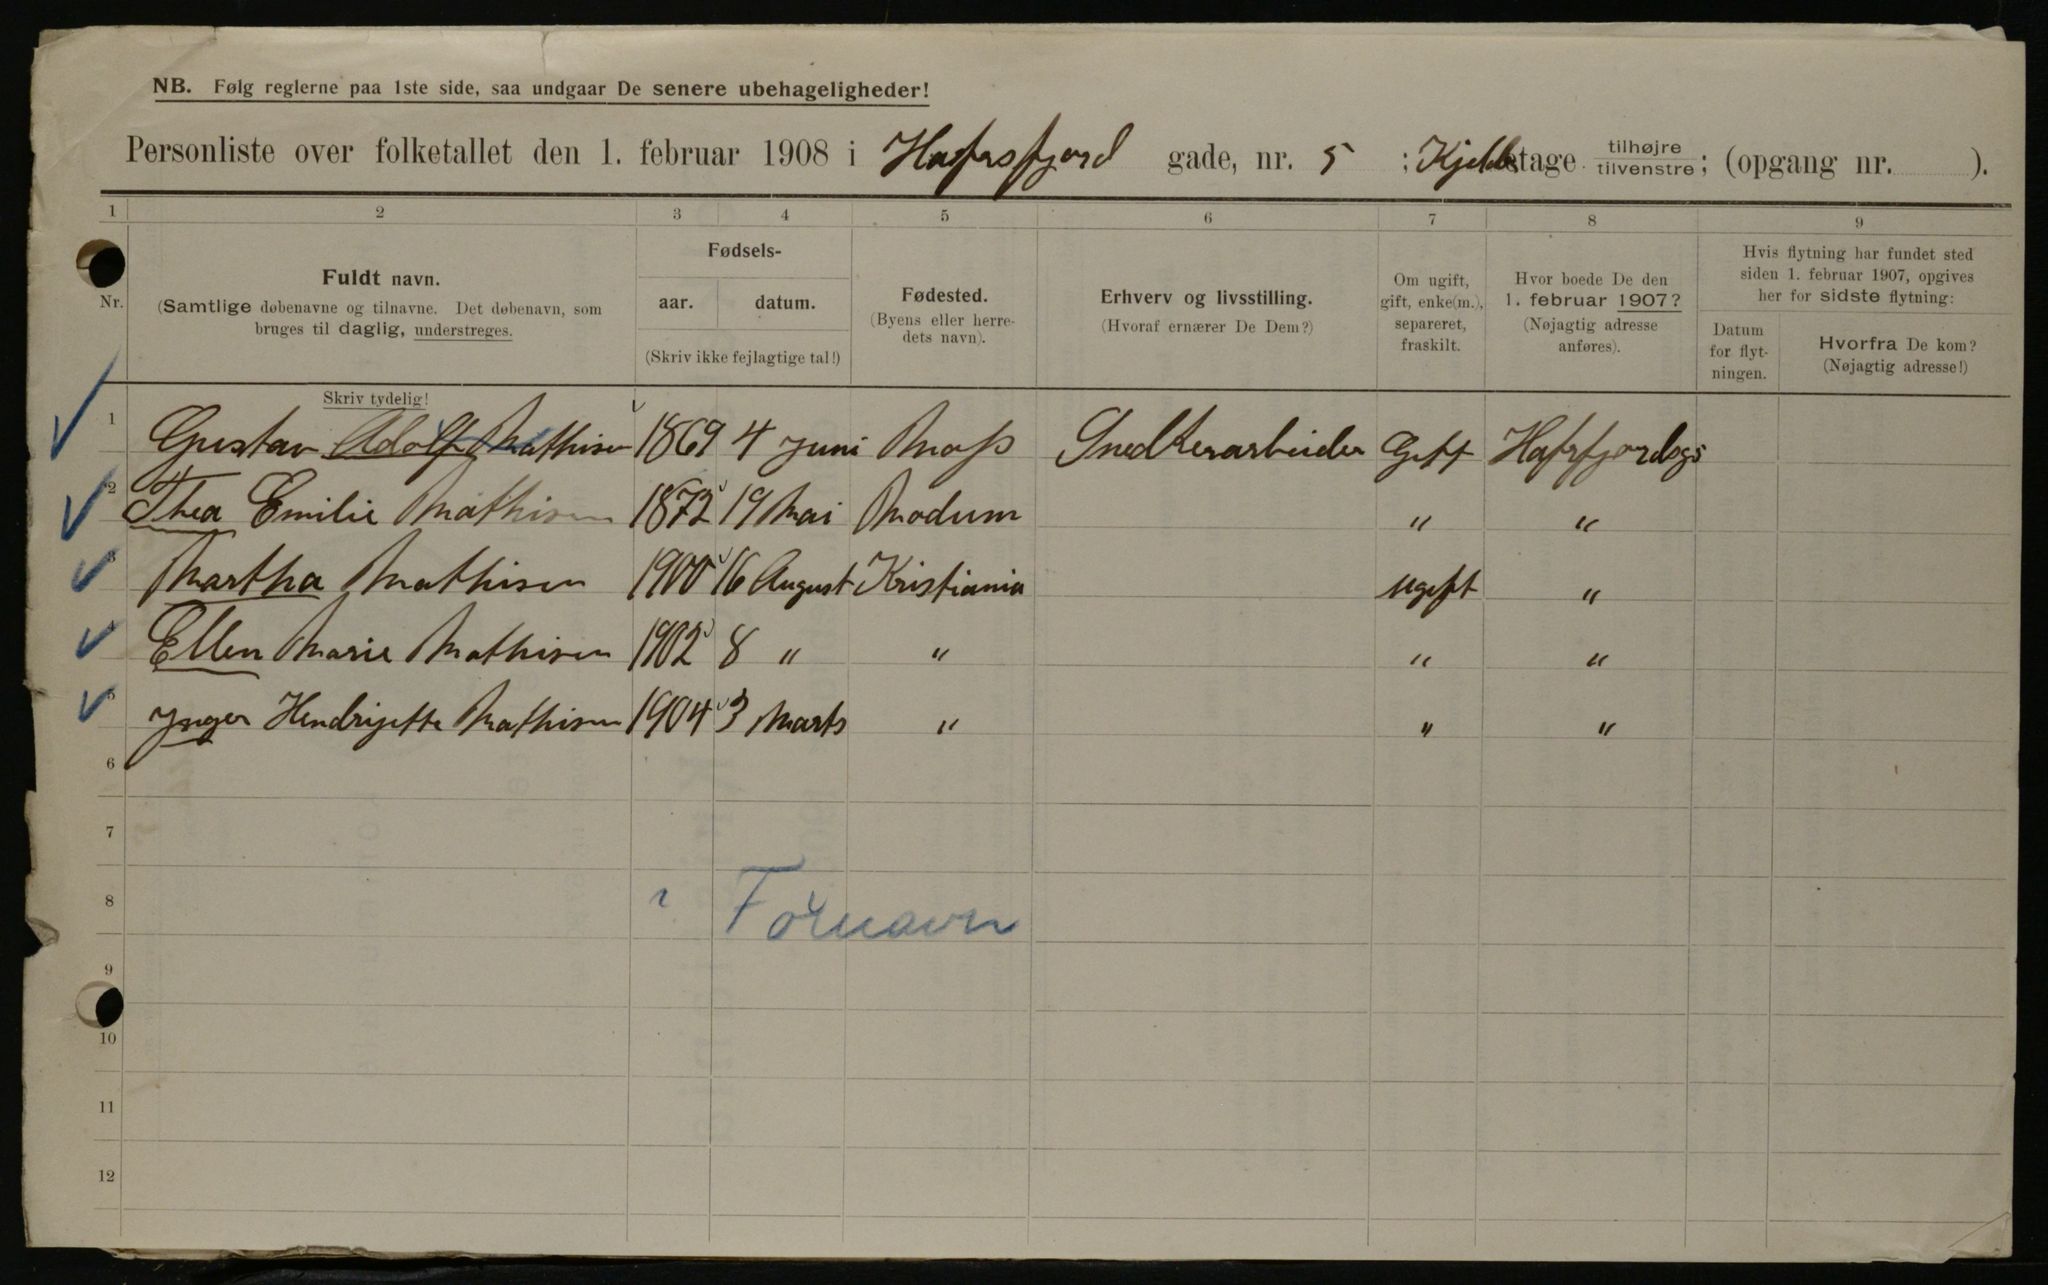 NB. Følg reglerne paa 1ste side, saa undgaar De senere ubehageligheder!
Personliste over folketallet den 1. februar 1908 i Hafrsfjord gade, nr. 5 ; Kjelder etage tilhøjre tilvenstre; (opgang nr. ).
1 2 3 4 5 6 7 8 9
Nr.
Fuldt navn.
(Samtlige døbenavne og tilnavne. Det døbenavn, som
bruges til daglig, understreges.
Skriv tydelig!
Fødsels-
aar. datum.
(Skriv ikke fejlagtige tal!)
Fødested.
(Byens eller herre-
dets navn).
Erhverv og livsstilling.
(Hvoraf ernærer De Dem?)
Om ugift,
gift, enke(m.),
separeret,
fraskilt.
Hvor boede De den
1. februar 1907?
(Nøjagtig adresse
anføres).
Hvis flytning har fundet sted
siden 1. februar 1907, opgives
her for sidste flytning:
Datum
for flyt-
ningen.
Hvorfra De kom?
(Nøjagtig adresse!)
1 Gustav Adolf Mathisen 1869 4 Juni Moss Snedkerarbeider Gift Hafrfjordsg 5
2 Thea Emilie Mathisen 1872 19 Mai Modum " "
3 Martha Mathisen 1900 16 August Kristiania ugift "
4 Ellen Marie Mathisen 1902 8 " " " "
5 Ynger Hendrijette Mathisen 1904 3 Marts " " "
6
7
8 Fornavn
9
10
11
12